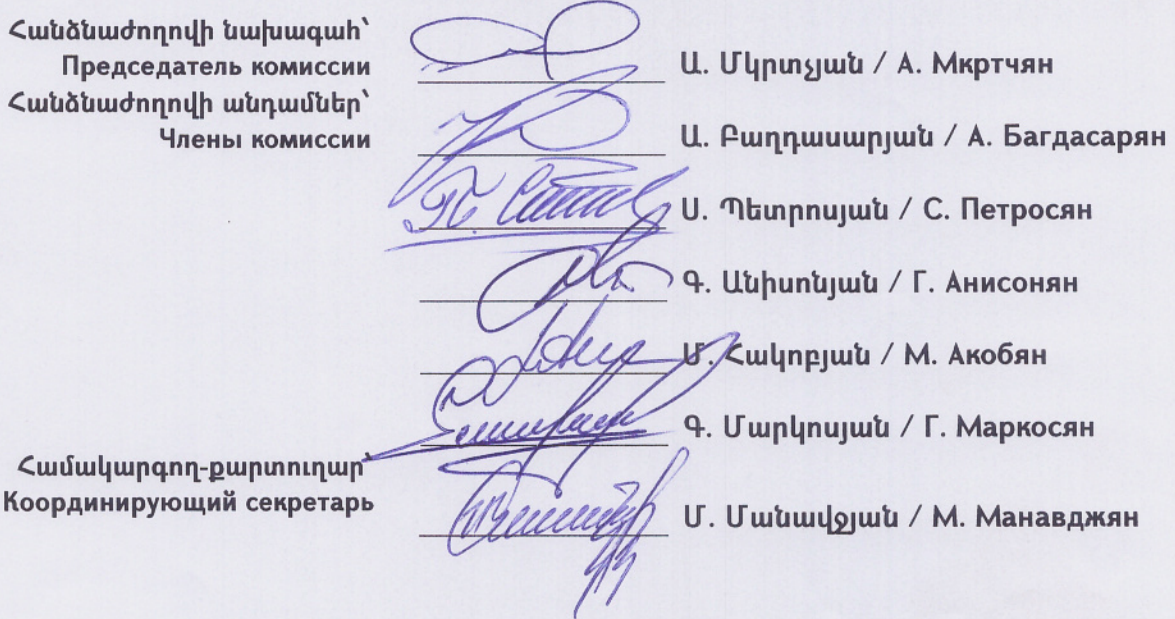 Հանձնաժողովի նախագահ՝
Председатель комиссии
Ա. Մկրտչյան / А. Мкртчян
Հանձնաժողովի անդամներ՝
Члены комиссии
Ա. Բաղդասարյան / А. Багдасарян
Ս. Պետրոսյան / С. Петросян
Գ. Անիսոնյան / Г. Анисонян
Մ. Հակոբյան / М. Акобян
Գ. Մարկոսյան / Г. Маркосян
Համակարգող-քարտուղար՝
Координирующий секретарь
Մ. Մանավջյան / М. Манавджян